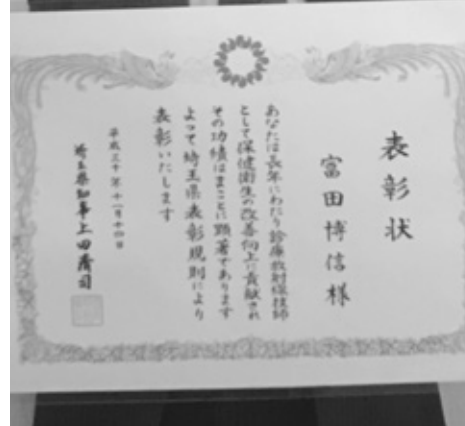 表彰状
富田博信様
あなたは長年にわたり診療放射線技師
として保健衛生の改善向上に貢献され
その功績はまことに顕著であります
よって埼玉県表彰規則により
表彰いたします
平成三十年十一月十四日
埼玉県知事上田清司